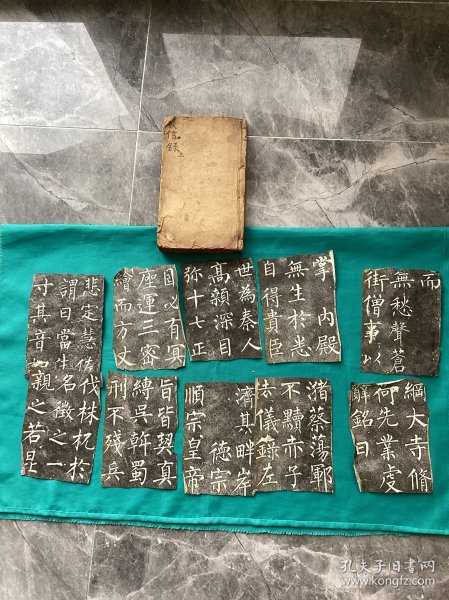 信錄
上
而
無愁聲蒼
街僧事以
掌內殿
無生於悉
自得貴臣
世為秦人
高顙深目
弥十七正
目必有真
座運三密
繪而方丈
悲定慧佐
謂曰當生
寸其音
綱大寺脩
何先業虔
銘曰
潴蔡蕩鄆
不黷赤子
去儀錄左
濟其畔岸
德宗
順宗皇帝
旨皆契真
縛吳斡蜀
刑不殘兵
伐株杌於
名徵之一
親之若昆
孔夫子旧书网
www.kongfz.com